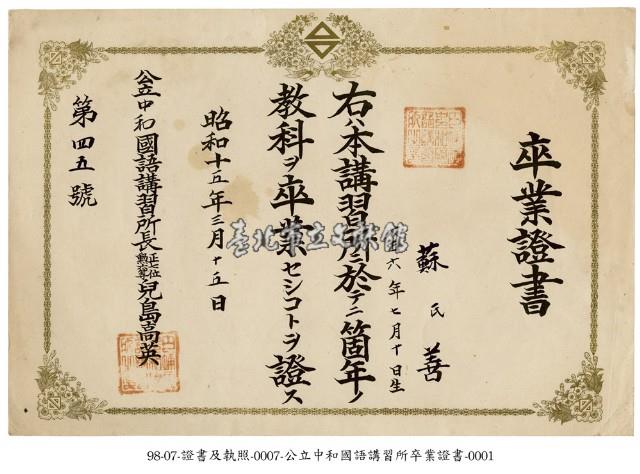 卒業證書
蘇氏善
六年七月十日生
右ハ本講習所ニ於テ二箇年ノ
教科ヲ卒業セシコトヲ證ス
昭和十五年三月十五日
公立中和國語講習所長正七位兒島高英
第四五號
臺北市立文獻館
98-07-證書及執照-0007-公立中和國語講習所卒業證書-0001